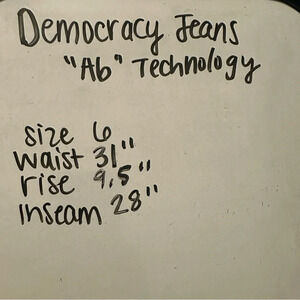 Democracy Jeans
"Ab" Technology
size 6
waist 31"
rise 9.5"
inseam 28"